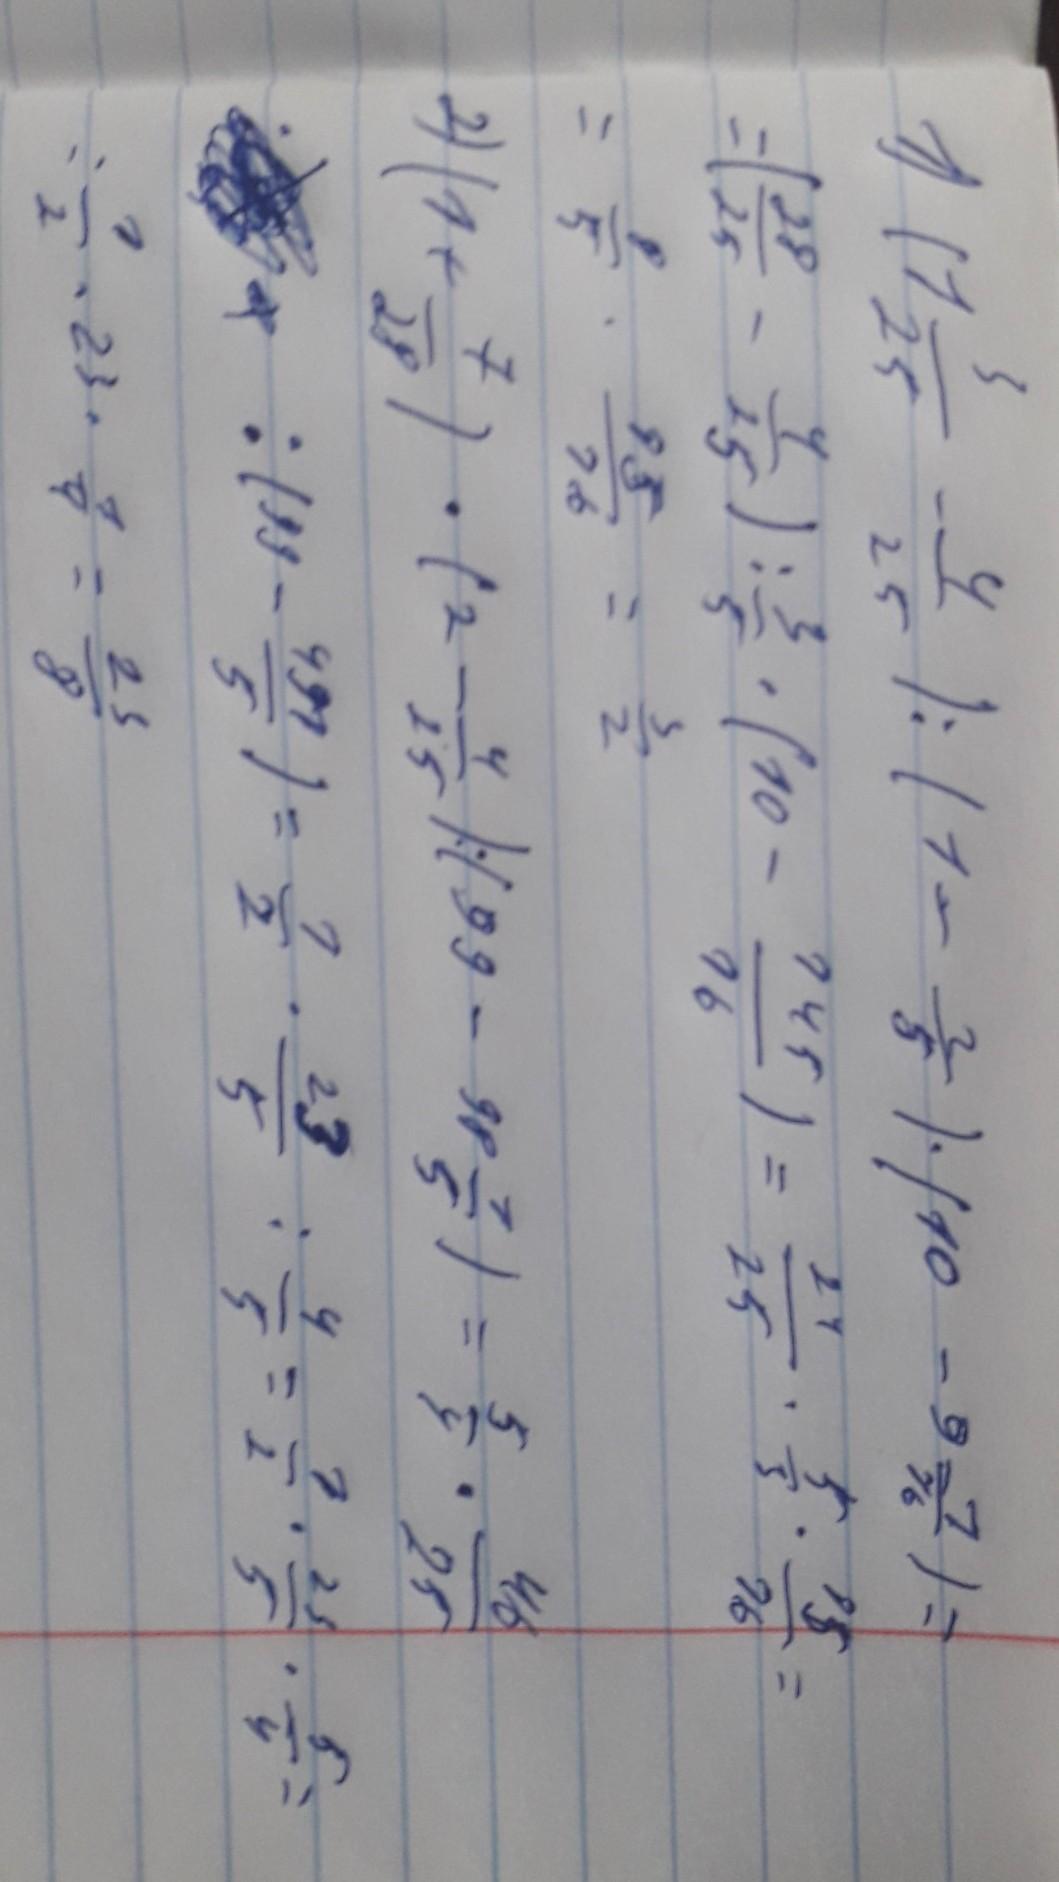 1) (1 3/25 - 4/25) : (1 - 2/5) · (10 - 9 1/16) =
= (28/25 - 4/25) : 3/5 · (10 - 145/16) = 24/25 · 5/3 · 15/16 =
= 8/5 · 15/16 = 3/2
2) (1 + 7/28) · (2 - 4/25) : (99 - 98 1/5) = 5/4 · 46/25
: (99 - 491/5) = 1/2 · 23/5 : 4/5 = 1/2 · 23/5 · 5/4 =
: 1/2 · 23 · 1/4 = 23/8